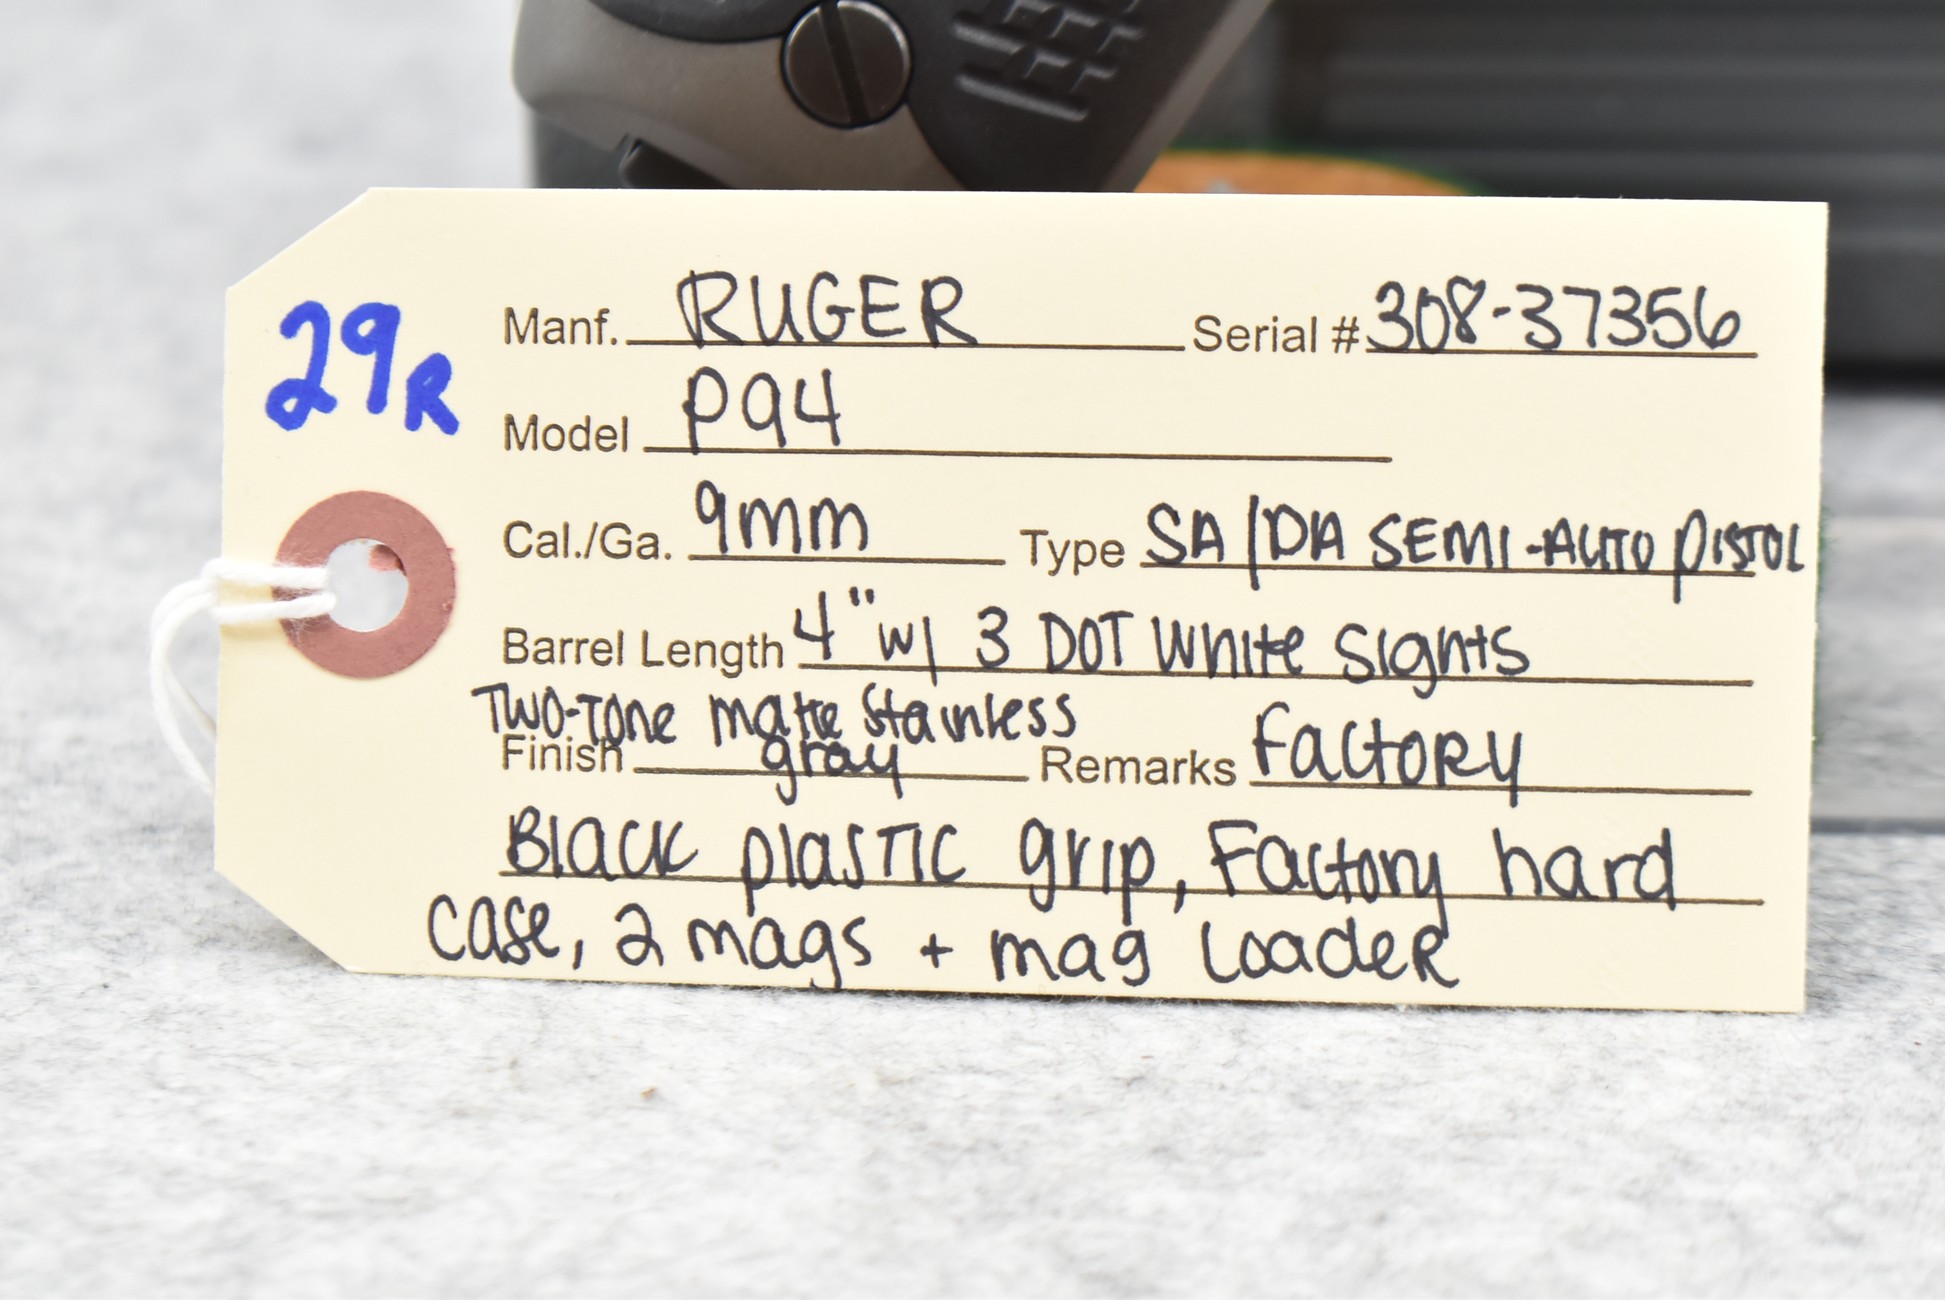 29R
Manf. RUGER Serial # 308-37356
Model P94
Cal./Ga. 9mm Type SA/DA SEMI-AUTO PISTOL
Barrel Length 4" w/ 3 DOT White Sights
Two-Tone matte Stainless
Finish gray Remarks Factory
Black plastic grip, Factory hard
case, 2 mags + mag Loader